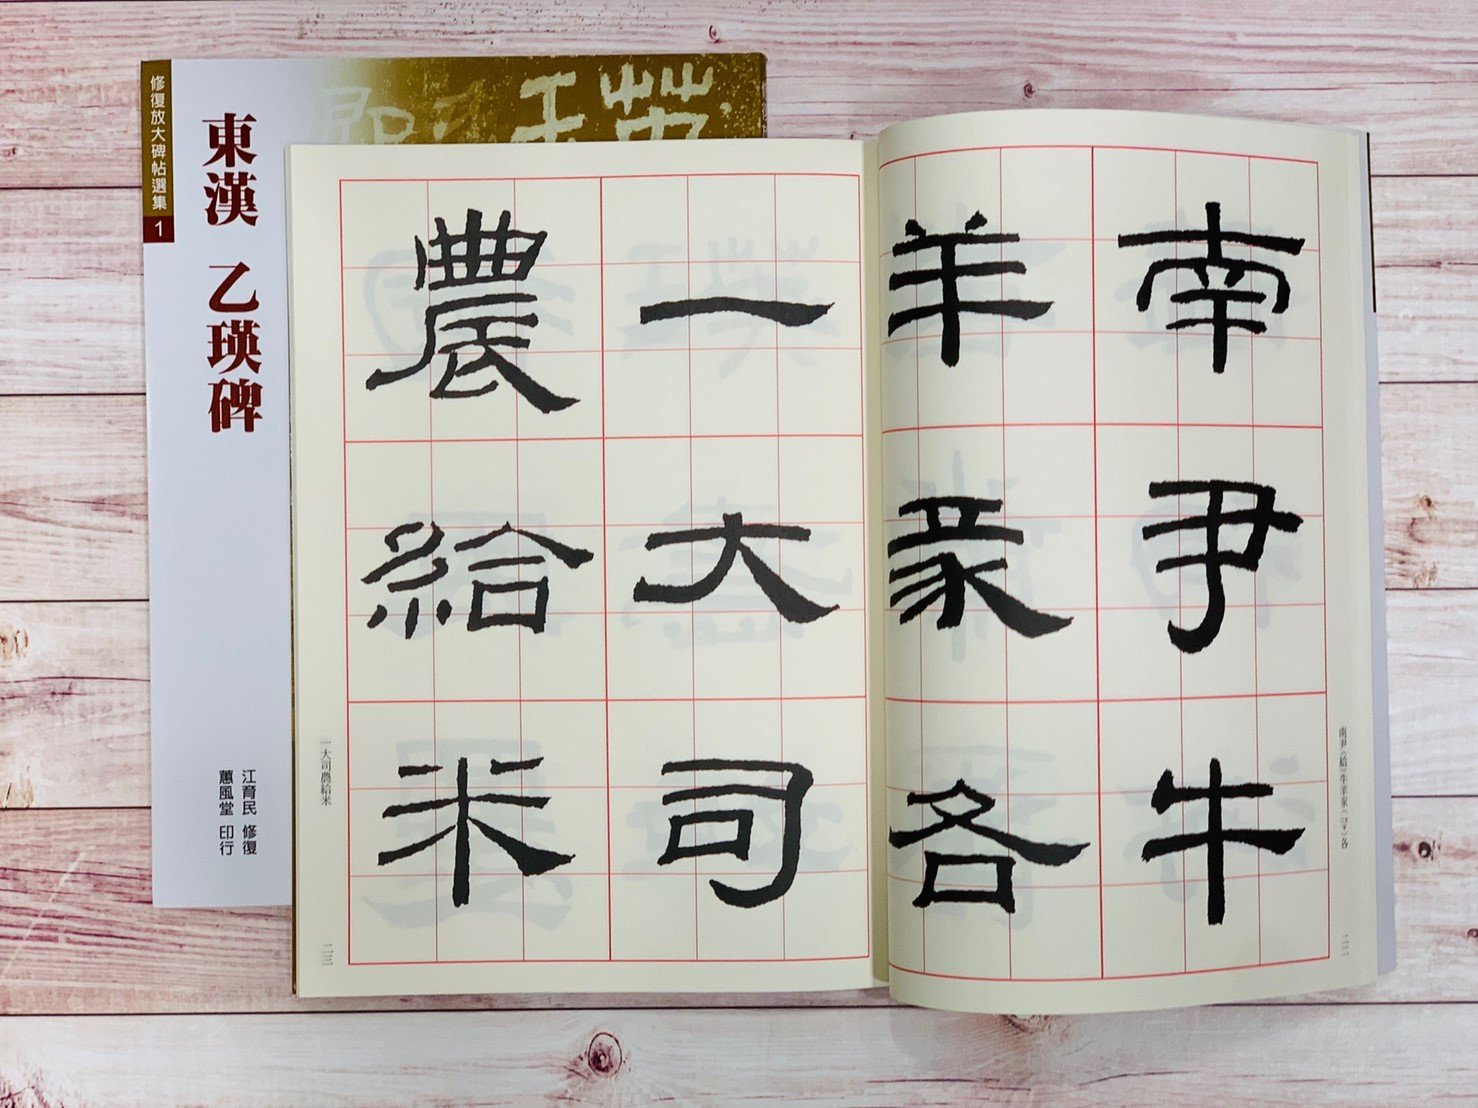 修復放大碑帖選集 1
東漢 乙瑛碑
江育民 修復
蕙風堂 印行
南尹牛
羊豕各
南尹（給）牛羊豕各
二二
一大司
農給米
一大司農給米
二三